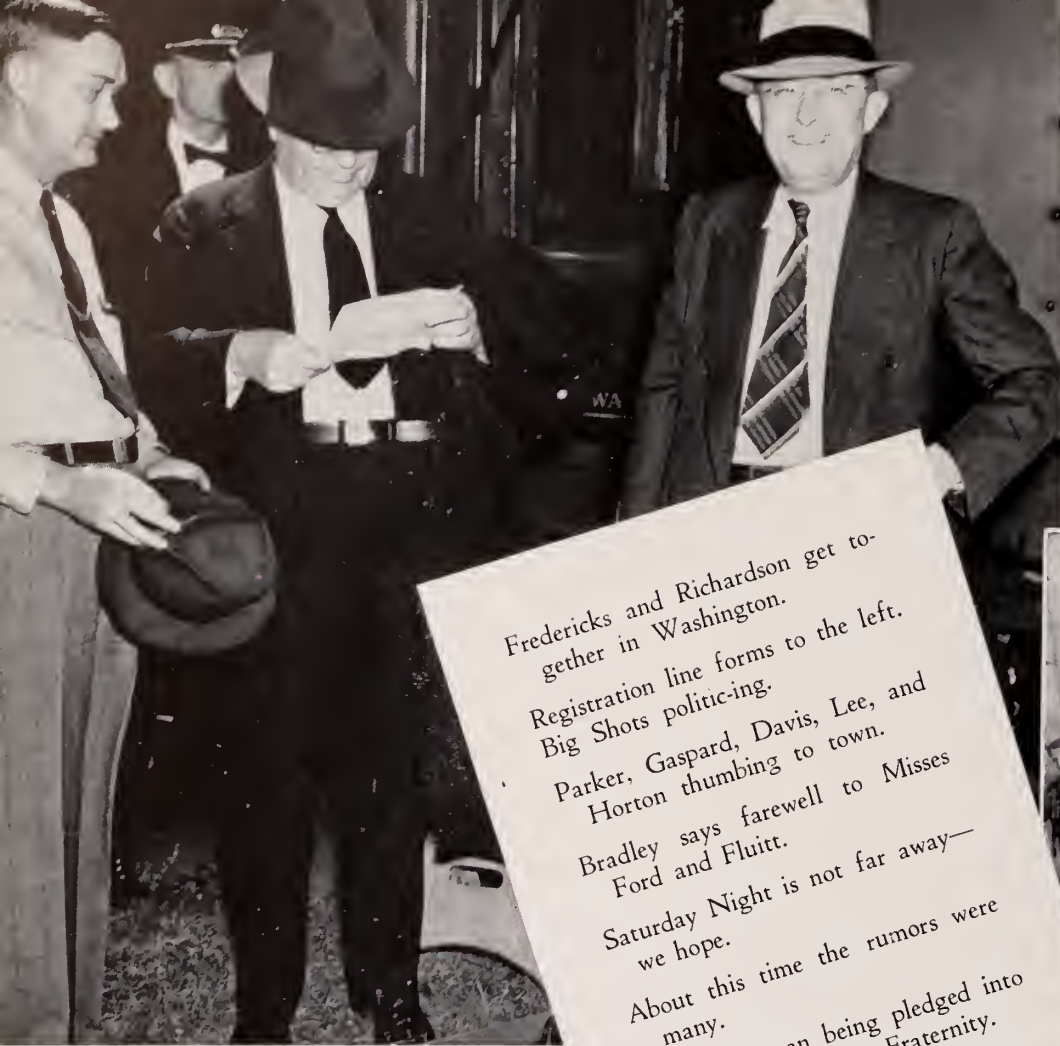 WA
Fredericks and Richardson get to-
gether in Washington.
Registration line forms to the left.
Big Shots politic-ing.
Parker, Gaspard, Davis, Lee, and
Horton thumbing to town.
Bradley says farewell to Misses
Ford and Fluitt.
Saturday Night is not far away—
we hope.
About this time the rumors were
many.
being pledged into
Fraternity.